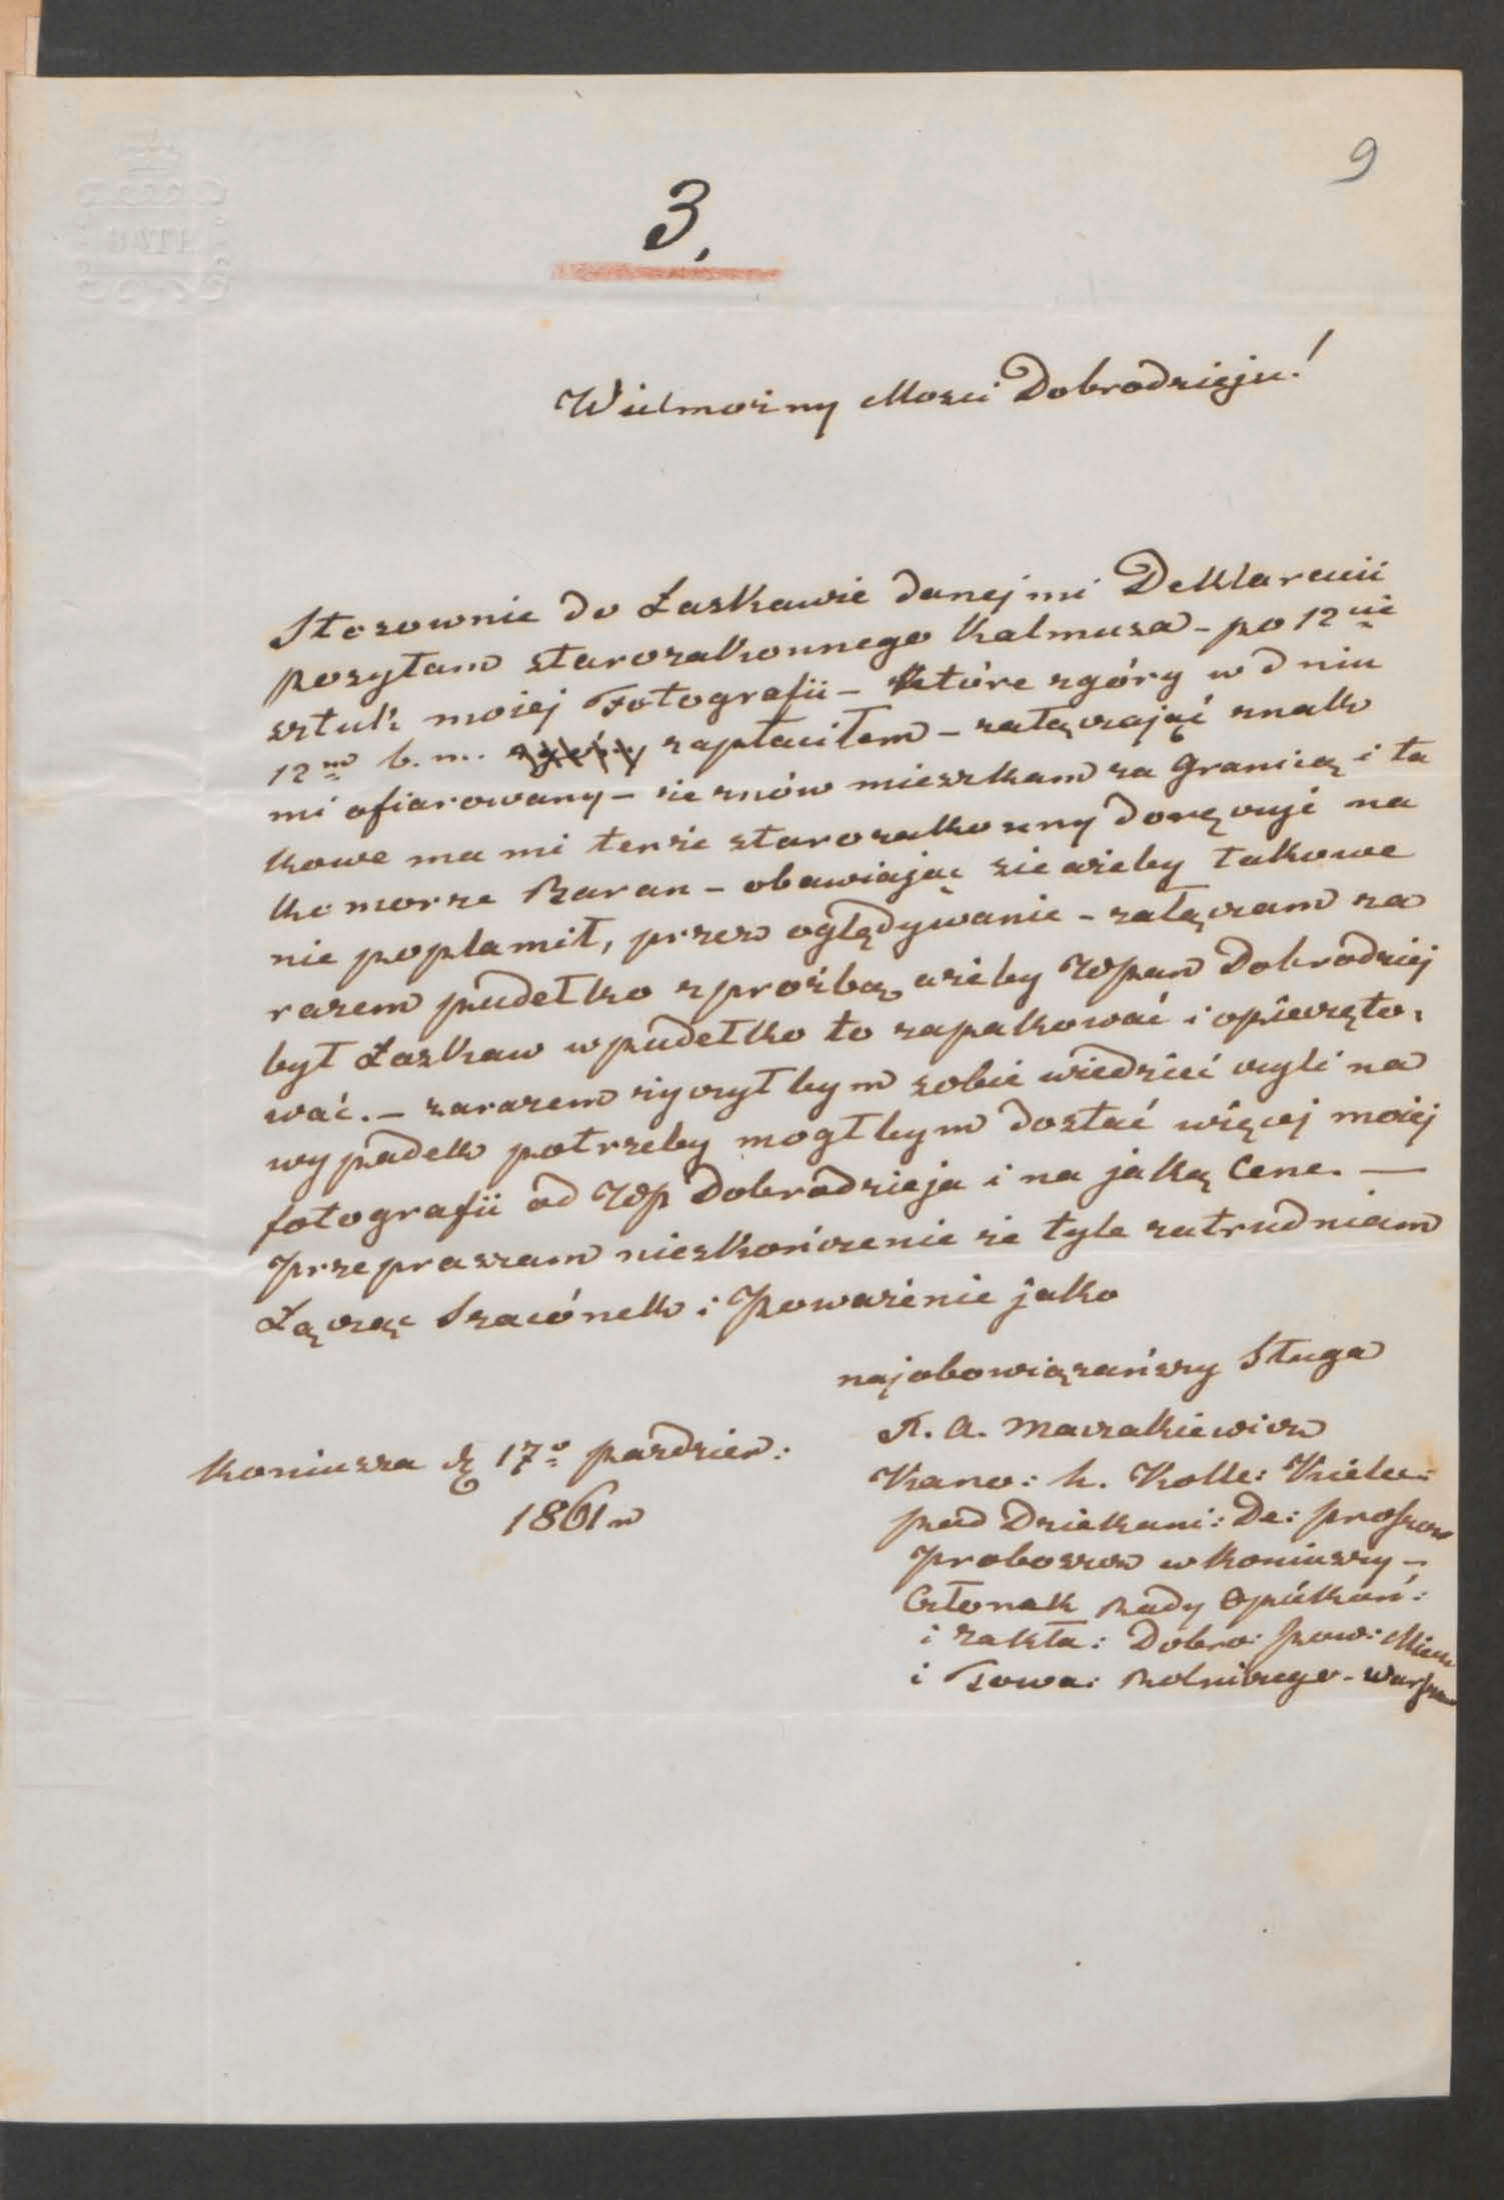 9
3,
BATH
Wielmożny Mości Dobrodzieju!
Stosownie do Łaskawie danej mi Deklaracii
posyłam starozakonnego Kalmusa - po 12cie
sztuk mojej Fotografii - które zgóry w dniu
12m b. m. zapłaciłem - załączając znak
mi ofiarowany - że znów mieszkam za Granicą i ta
kowe ma mi tenże starozakonny doręczyć na
komorze Baran - obawiając sie ażeby takowe
nie poplamił, przez oględywanie - załączam za
razem pudełko z prożbą ażeby WPan Dobrodziej
był Łaskaw w pudełko to zapakować i opieczęto-
wać. - zarazem życzyłbym sobie wiedzieć czyli na
wypadek potrzeby mogłbym dostać więcej mojej
fotografii od WP Dobrodzieja i na jaką Cene. —
Przepraszam nieskończenie że tyle zatrudniam
Łącząc Szacónek i Poważenie jako
najobowiązańszy Sługa
X. A. Maczakiewicz
Koniusza d 17o pazdzier:
1861 r
Kano: h. Kolle: Kielec:
pod Dziekani: De: proszow
Proboszcz w Koniuszy -
Członek Rady Opiekuń:
i zakła: Dobro: pow: Miech
i Towa: Rolniczego - Warszaw